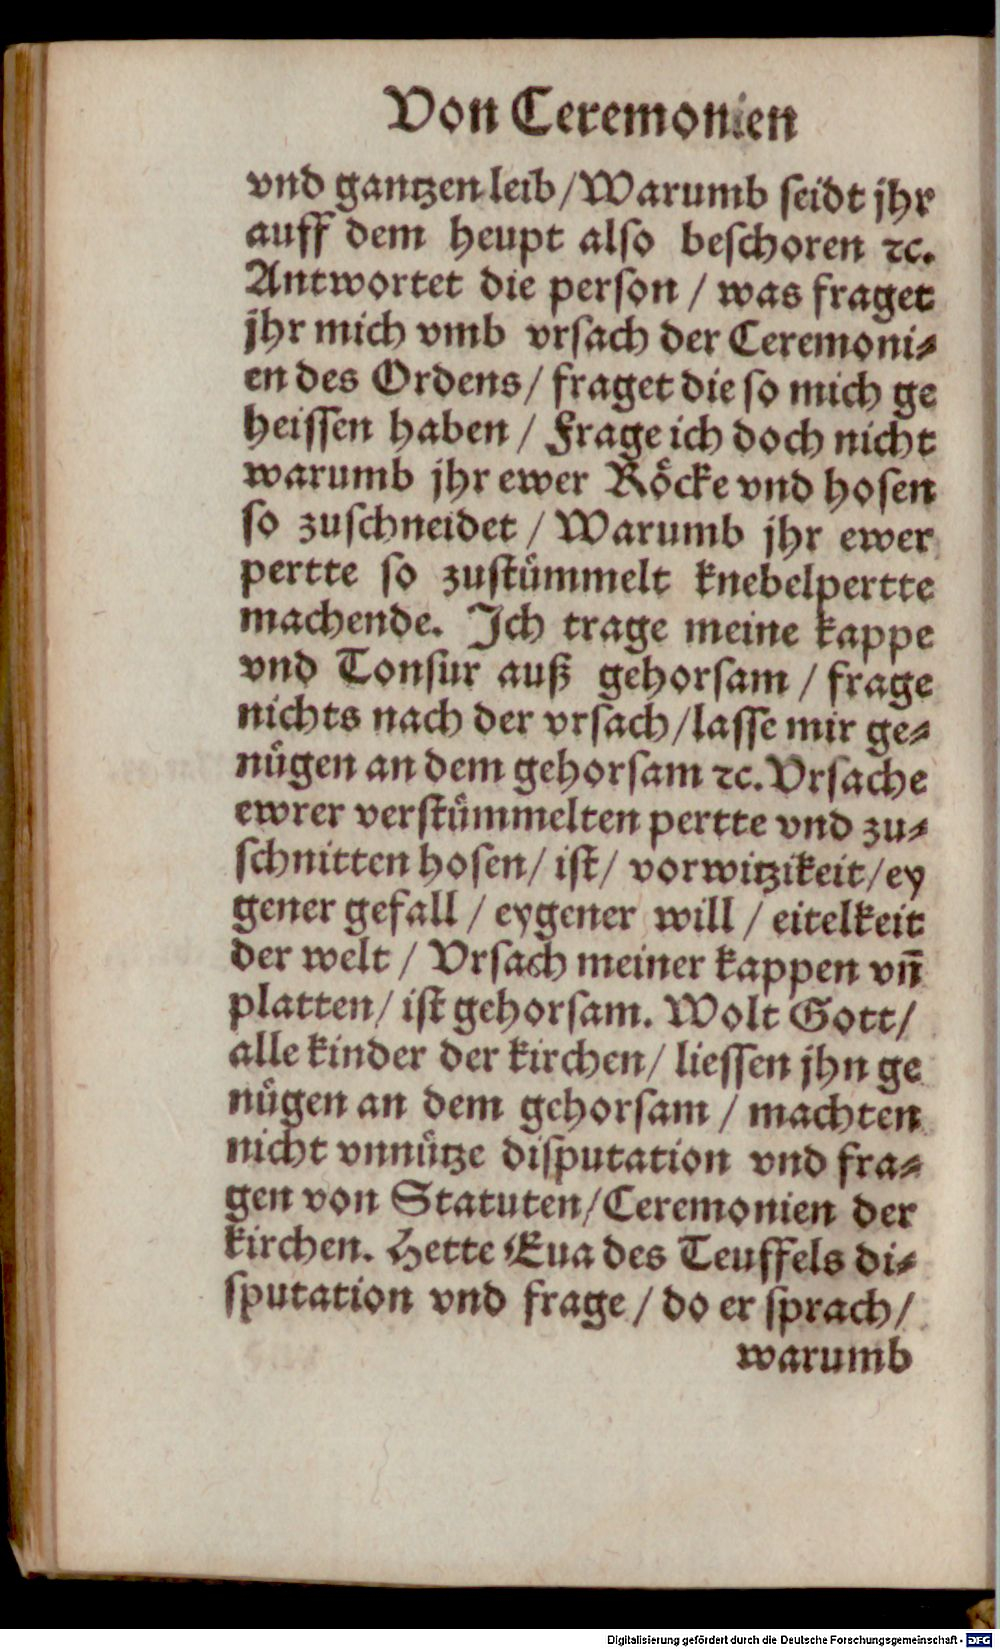 Von Ceremonien
vnd gantzen leib / Warumb seidt jhr
auff dem heupt also beschoren ꝛc.
Antwortet die person / was fraget
jhr mich vmb vrsach der Ceremoni⸗
en des Ordens / fraget die so mich ge
heissen haben / Frage ich doch nicht
warumb jhr ewer Röcke vnd hosen
so zuschneidet / Warumb jhr ewer
pertte so zustümmelt knebelpertte
machende. Ich trage meine kappe
vnd Tonsur auß gehorsam / frage
nichts nach der vrsach / lasse mir ge⸗
nügen an dem gehorsam ꝛc. Vrsache
ewrer verstümmelten pertte vnd zu⸗
schnitten hosen / ist / vorwitzikeit / ey
gener gefall / eygener will / eitelkeit
der welt / Vrsach meiner kappen vñ
platten / ist gehorsam. Wolt Gott /
alle kinder der kirchen / liessen jhn ge
nügen an dem gehorsam / machten
nicht vnnütze disputation vnd fra⸗
gen von Statuten / Ceremonien der
kirchen. Hette Eua des Teuffels di⸗
sputation vnd frage / do er sprach /
warumb
Digitalisierung gefördert durch die Deutsche Forschungsgemeinschaft - DFG